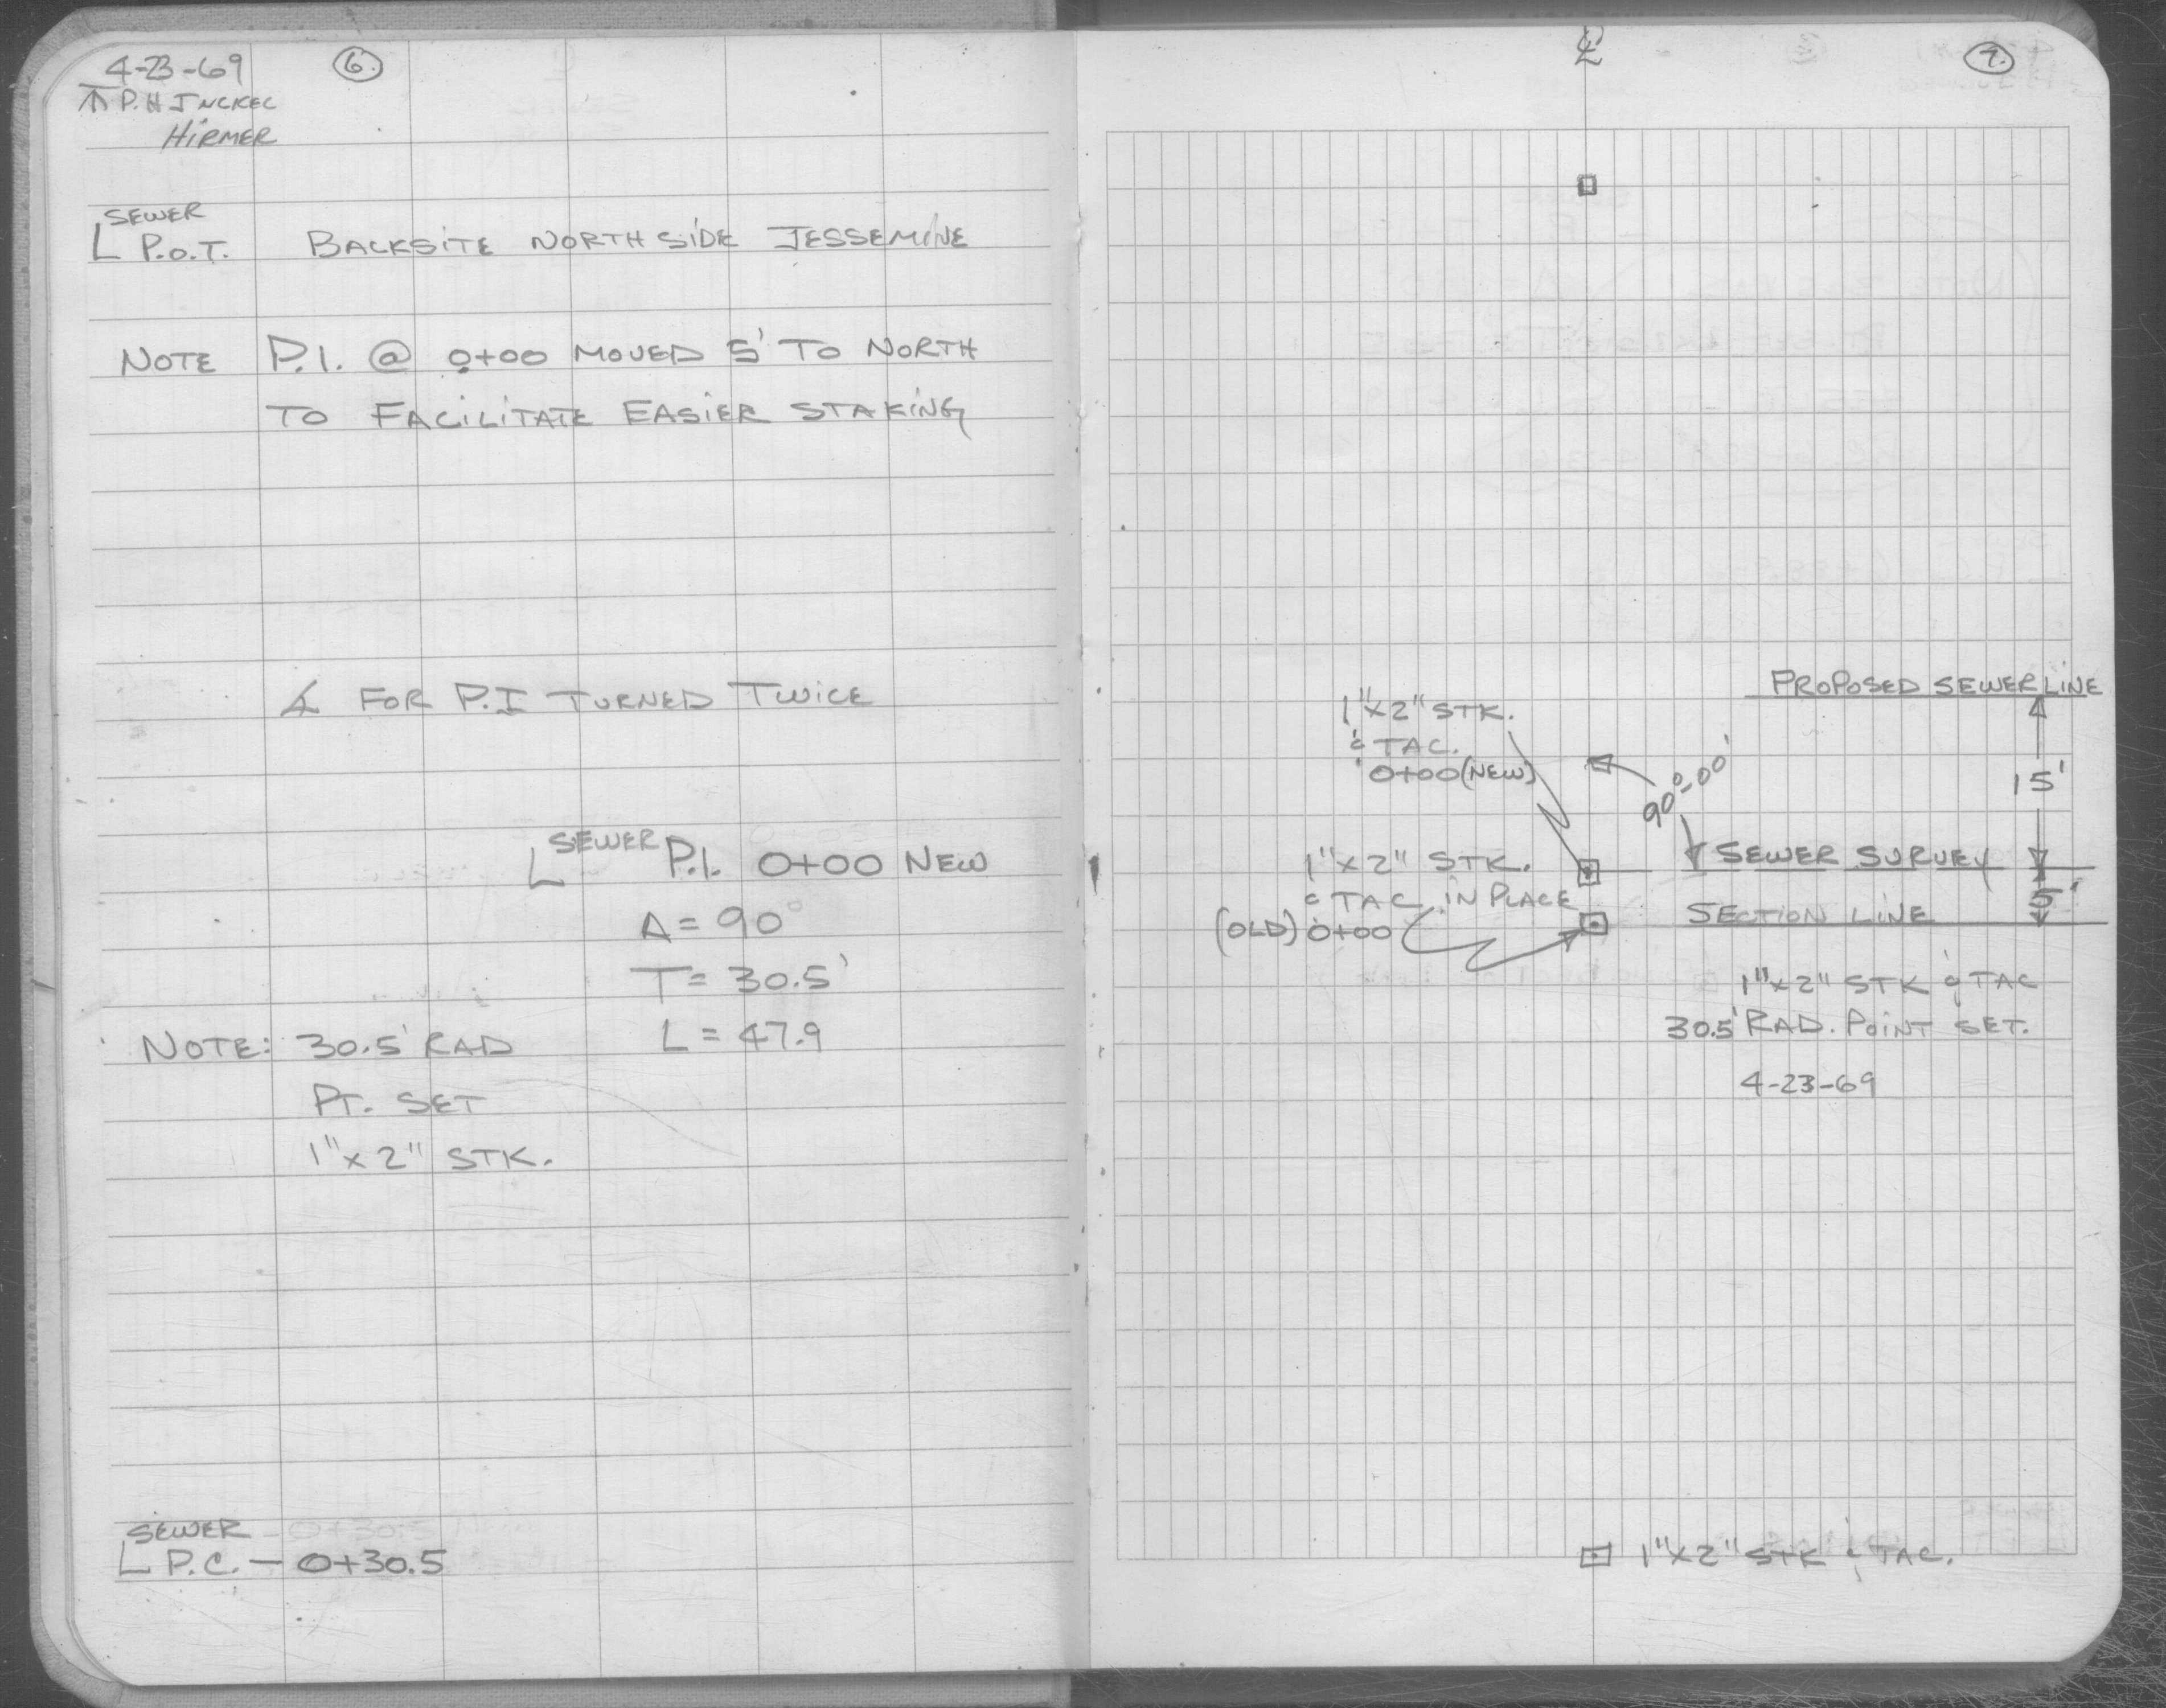 4-23-69
6.
P.H JNCKEL
HIRMER
SEWER
P.O.T. BACKSITE NORTH SIDE JESSEMINE
NOTE P.I. @ 0+00 MOVED 5' TO NORTH
TO FACILITATE EASIER STAKING
∡ FOR P.I TURNED TWICE
SEWER P.I. 0+00 NEW
Δ = 90°
T = 30.5'
L = 47.9
NOTE: 30.5' RAD
PT. SET
1"x2" STK.
SEWER
P.C. - 0+30.5
℄
7.
PROPOSED SEWER LINE
1"x2" STK.
& TAC.
0+00 (NEW)
90°-00'
15'
SEWER SURVEY
1"x2" STK.
& TAC IN PLACE
(OLD) 0+00
5'
SECTION LINE
1"x2" STK & TAC
30.5' RAD. POINT SET.
4-23-69
1"x2" STK & TAC.